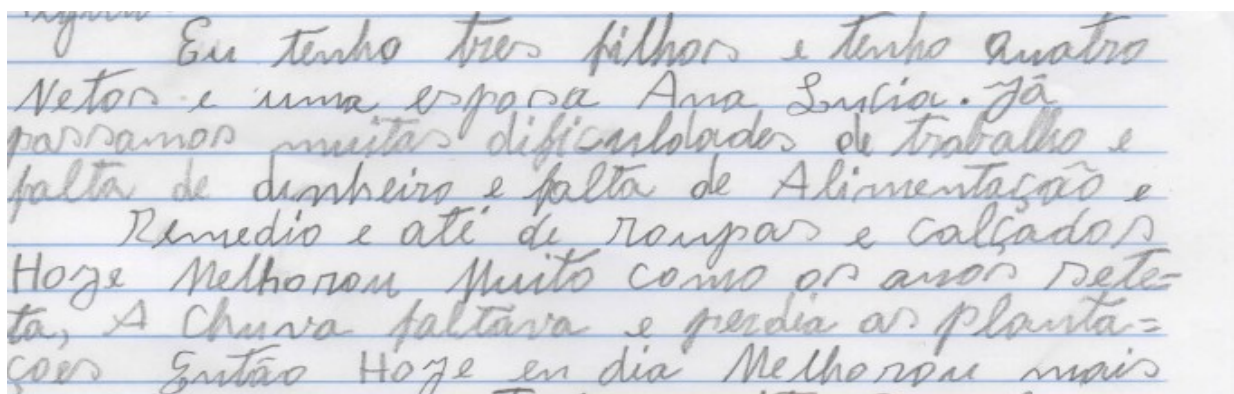 Eu tenho tres filhos e tenho quatro
Netos e uma esposa Ana Lucia. Já
passamos muitas dificuldades de trabalho e
falta de dinheiro e falta de Alimentação e
Remedio e até de roupas e calçados
Hoje Melhorou Muito como os anos sete=
ta, A Chuva faltava e perdia as planta=
ções Então Hoje en dia Melhorou mais